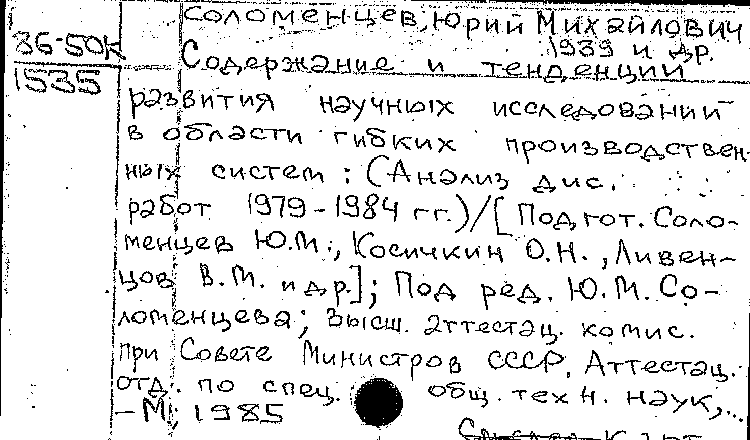 Соломенцев, Юрий Михайлович
86-50к
1939 и др.
1535
Содержание и тенденции
развития научных исследований
в области гибких производствен-
ных систем: (Анализ дис.
работ 1979-1984 гг.)/[Подгот. Соло-
менцев Ю.М., Косичкин О.Н., Ливен-
цов В.М. и др.]; Под ред. Ю.М. Со-
ломенцева; Высш. аттестац. комис.
при Совете Министров СССР, Аттестац.
отд. по спец. общ. техн. наук,..
-М, 1985